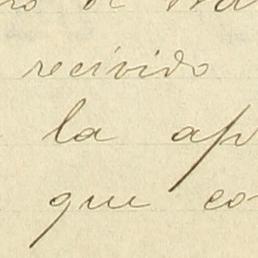 de
recivido
la ap
que co